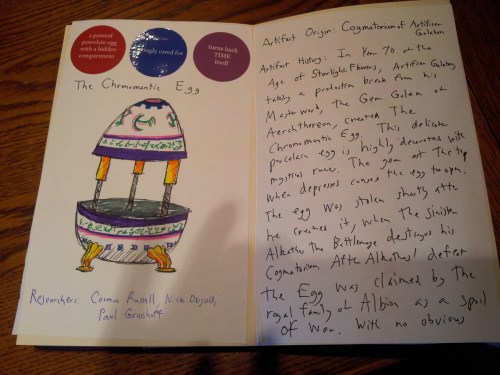 a painted
porcelain egg
with a hidden
compartment
ngly cared for
turns back
TIME
itself
The Chronomantic Egg
Researchers: Corma Russell, Nich
Paul
Artifact Origin: Cogmatorium of Artificer
Galabon
Artifact History: In Year 70 of the
Age of Starlight Flowers, Artificer Galabon,
taking a production break from his
Masterwork, the Gem Golem of
created The
Chronomantic Egg. This delicate
porcelain egg is highly decorated with
mystical runes. The gem at the top
when depressed causes the egg to open.
The egg was stolen shortly after
he creates it, when the sinister
the Battlemage destroys his
Cogmatorium. After defeat
the Egg was claimed by the
royal family of Albion as a spoil
of War. With no obvious